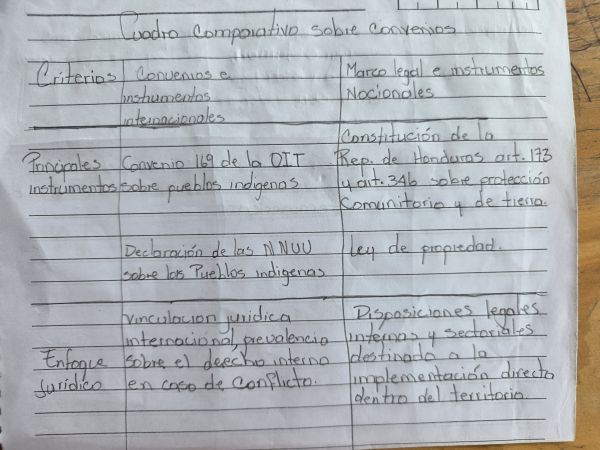 Cuadro Comparativo sobre convenios
Criterios
Convenios e
instrumentos
internacionales
Marco legal e instrumentos
Nacionales
Principales
instrumentos
Convenio 169 de la OIT
sobre pueblos indigenas
Declaración de las NNUU
sobre los Pueblos indigenas
Constitución de la
Rep. de Honduras art. 173
y art. 346 sobre protección
Comunitaria y de tierra.
Ley de propiedad.
Enfoque
Jurídico
Vinculacion juridica
internacional, prevalencia
sobre el derecho interno
en caso de conflicto.
Disposiciones legales
internas y sectoriales
destinado a la
implementación directa
dentro del territorio.